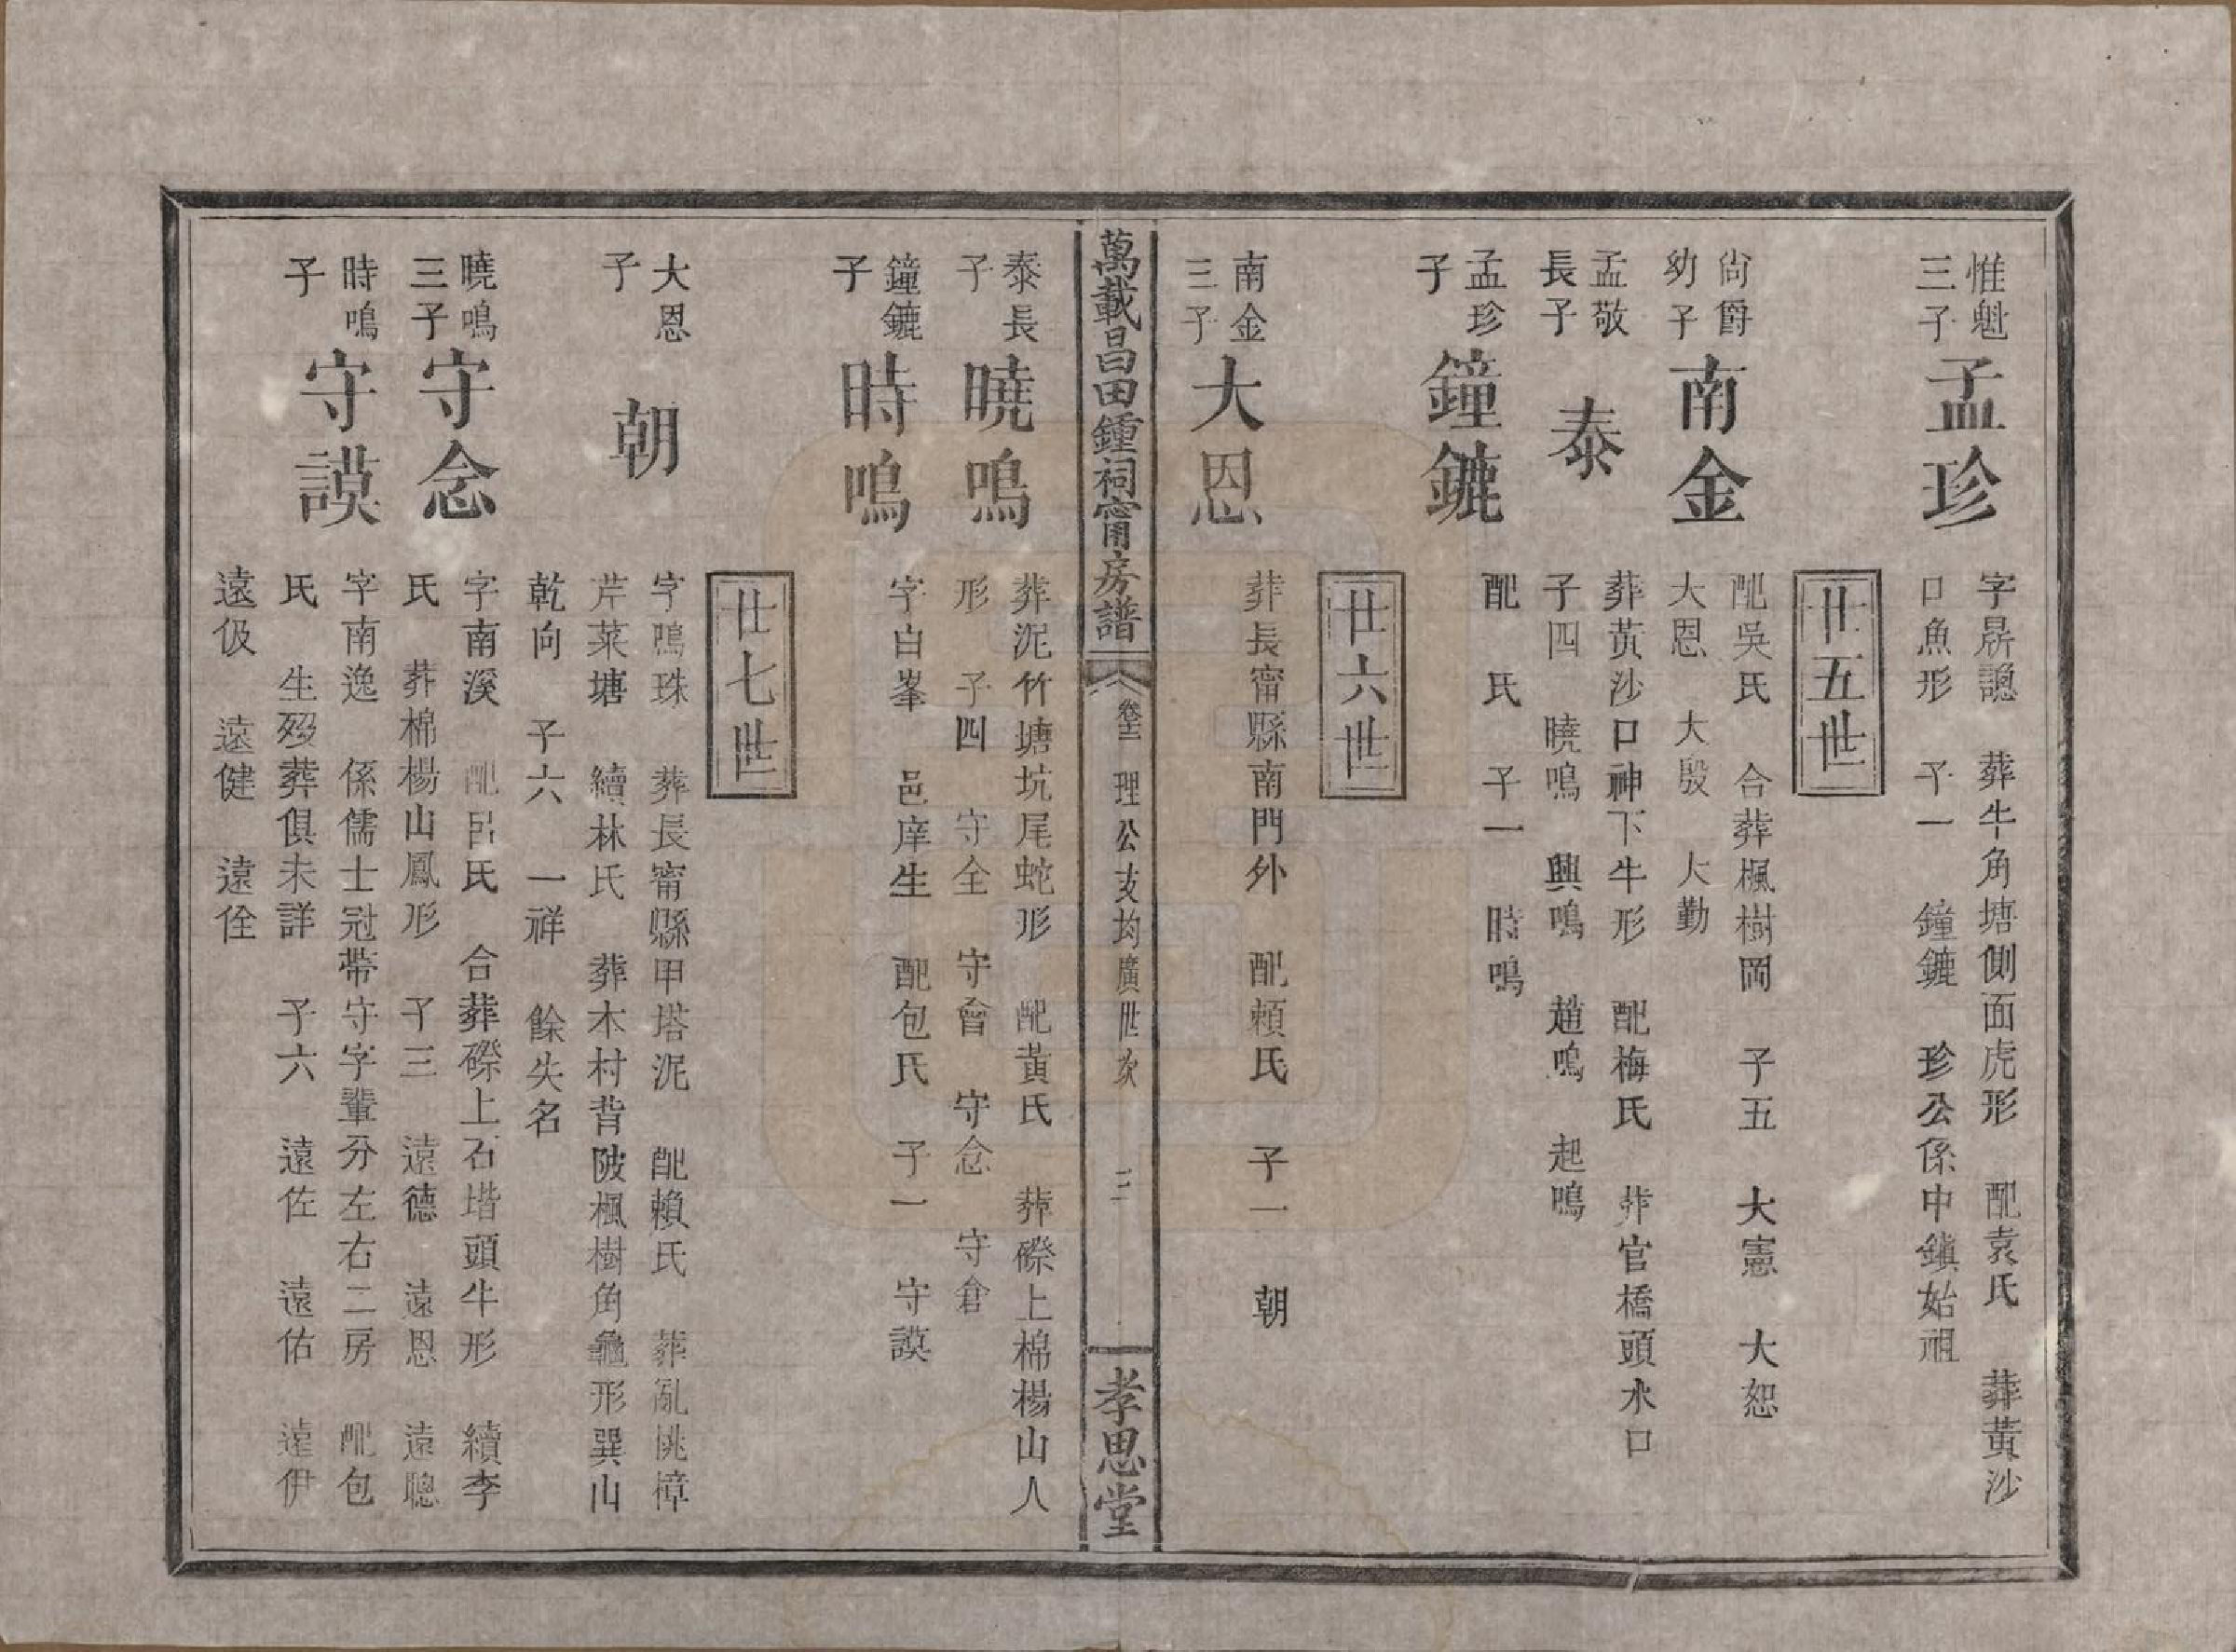 惟魁
三子
孟珍
字昺諰　葬牛角塘側面虎形　配袁氏　葬黃沙
口魚形　子一　鐘鏕　珍公係中鎮始祖
廿五世
尙爵
幼子
南金
配吳氏　合葬楓樹岡　子五　大憲　大恕
大恩　大殷　大勤
孟敬
長子
泰
葬黃沙口神下牛形　配梅氏　葬官橋頭水口
子四　曉鳴　興鳴　趙鳴　起鳴
孟珍
子
鐘鏕
配　氏　子一　時鳴
廿六世
南金
三子
大恩
葬長甯縣南門外　配賴氏　子一　朝
萬載昌田鍾祠甯房譜
理公支均廣世次
三
孝思堂
泰長
子
曉鳴
葬泥竹塘坑尾蛇形　配黃氏　葬磜上棉楊山人
形　子四　守全　守會　守念　守倉
鐘鏕
子
時鳴
字白峯　邑庠生　配包氏　子一　守謨
廿七世
大恩
子
朝
字鳴珠　葬長甯縣甲塔泥　配賴氏　葬亂桃樟
芹菜塘　續林氏　葬木村背陂楓樹角龜形巽山
乾向　子六　一祥　餘失名
曉鳴
三子
守念
字南溪　配呂氏　合葬磜上石堦頭牛形　續李
氏　葬棉楊山鳳形　子三　遠德　遠恩　遠聰
時鳴
子
守謨
字南逸　係儒士冠帶守字輩分左右二房　配包
氏　生歿葬俱未詳　子六　遠佐　遠佑　遠伊
遠伋　遠健　遠佺